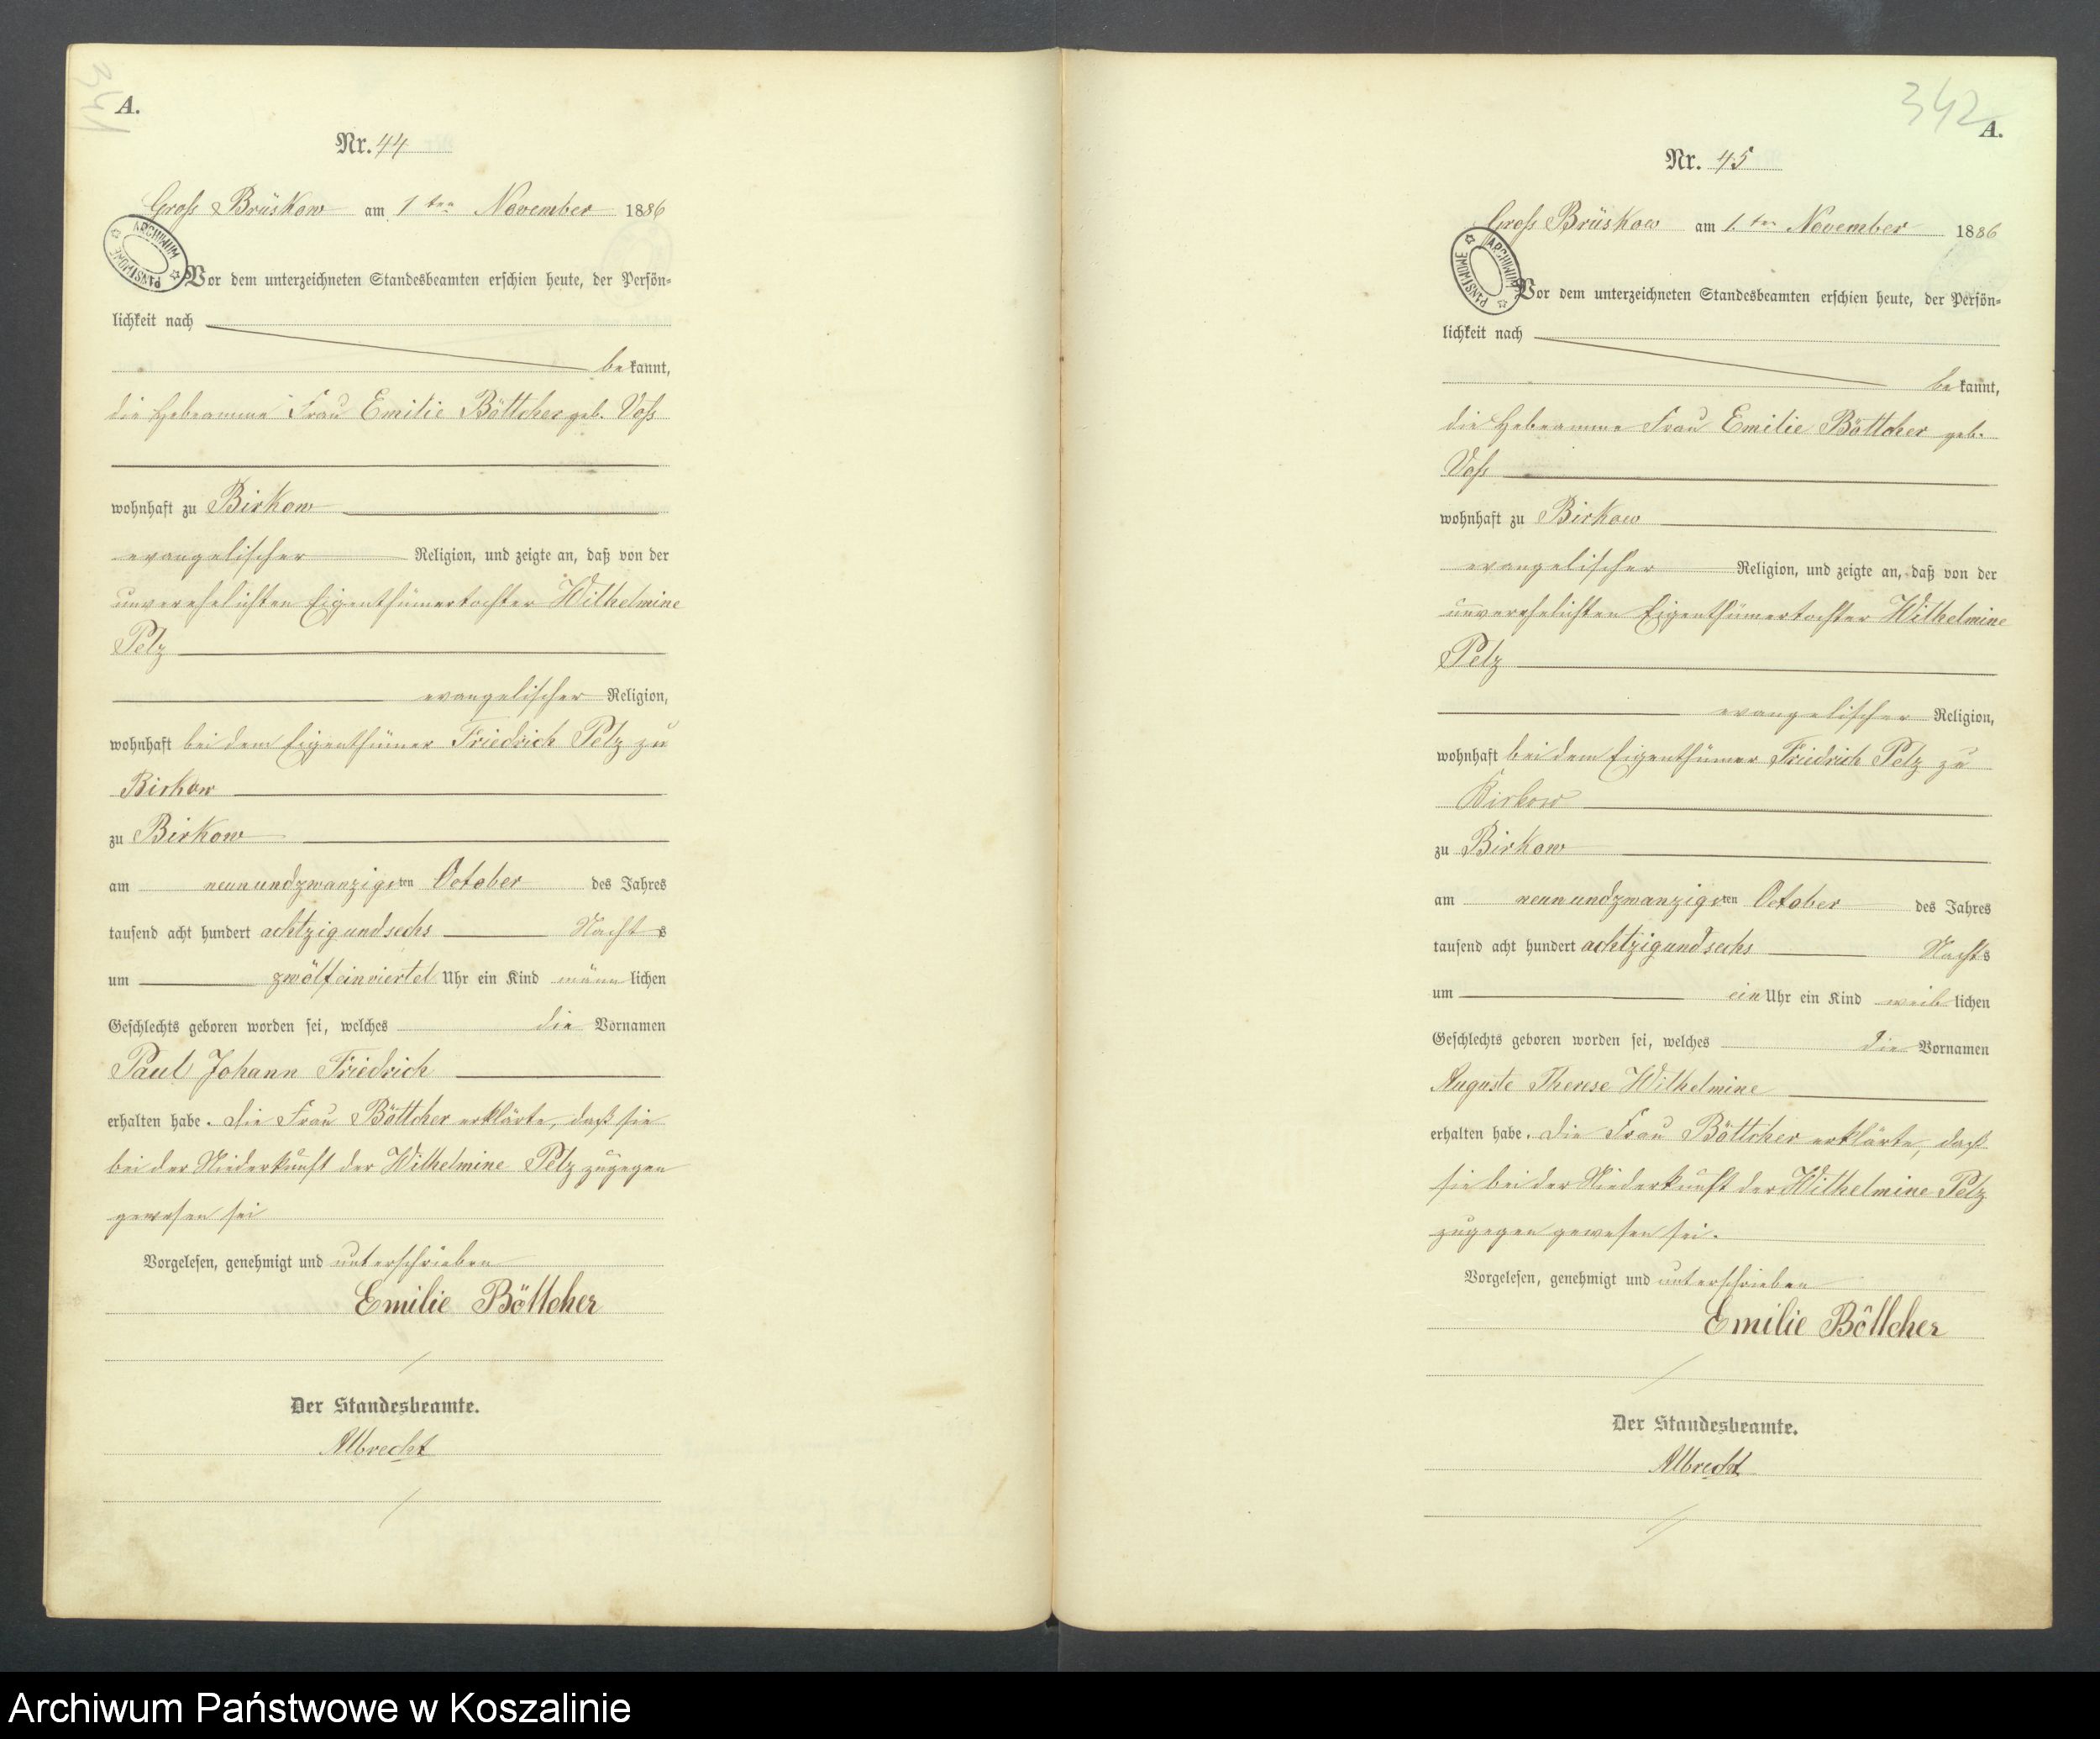 341
A.
Nr. 44
Gross Brüskow am 1ten November 1886
ARCHIWUM PAŃSTWOWE
Vor dem unterzeichneten Standesbeamten erschien heute, der Persön-
lichkeit nach
bekannt,
die Hebeamme Frau Emilie Böttcher geb. Voß
wohnhaft zu Birkow
evangelischer Religion, und zeigte an, daß von der
unverehelichten Eigenthümertochter Wilhelmine
Pelz
evangelischer Religion,
wohnhaft bei dem Eigenthümer Friedrich Pelz zu
Birkow
zu Birkow
am neunundzwanzigsten October des Jahres
tausend acht hundert achtzig und sechs Nachts
um zwölf einviertel Uhr ein Kind männlichen
Geschlechts geboren worden sei, welches die Vornamen
Paul Johann Friedrich
erhalten habe. Die Frau Böttcher erklärte, daß sie
bei der Niederkunft der Wilhelmine Pelz zugegen
gewesen sei
Vorgelesen, genehmigt und unterschrieben
Emilie Böttcher
Der Standesbeamte.
Albrecht
342
A.
Nr. 45
Gross Brüskow am 1.ten November 1886
ARCHIWUM PAŃSTWOWE
Vor dem unterzeichneten Standesbeamten erschien heute, der Persön-
lichkeit nach
bekannt,
die Hebeamme Frau Emilie Böttcher geb.
Voß
wohnhaft zu Birkow
evangelischer Religion, und zeigte an, daß von der
unverehelichten Eigenthümertochter Wilhelmine
Pelz
evangelischer Religion,
wohnhaft bei dem Eigenthümer Friedrich Pelz zu
Birkow
zu Birkow
am neunundzwanzigsten October des Jahres
tausend acht hundert achtzig und sechs Nachts
um ein Uhr ein Kind weiblichen
Geschlechts geboren worden sei, welches die Vornamen
Auguste Therese Wilhelmine
erhalten habe. Die Frau Böttcher erklärte, daß
sie bei der Niederkunft der Wilhelmine Pelz
zugegen gewesen sei.
Vorgelesen, genehmigt und unterschrieben
Emilie Böttcher
Der Standesbeamte.
Albrecht
Archiwum Państwowe w Koszalinie